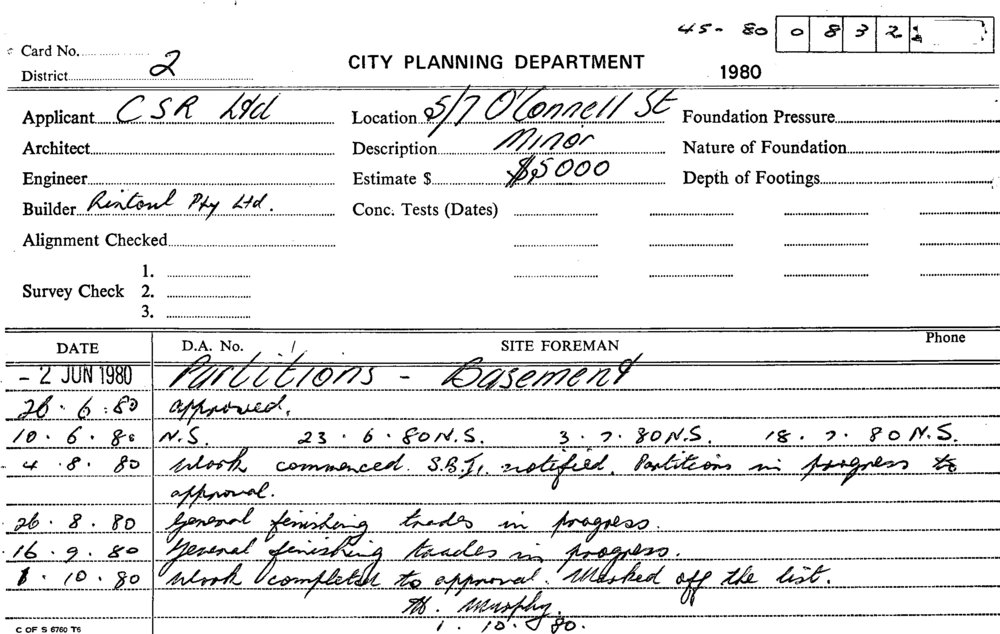 45-80 0832
Card No.
District 2
CITY PLANNING DEPARTMENT
1980
Applicant CSR Ltd
Location 5/7 O'Connell St
Foundation Pressure
Architect
Description Minor
Nature of Foundation
Engineer
Estimate $ $5000
Depth of Footings
Builder Rintoul Pty Ltd.
Conc. Tests (Dates)
Alignment Checked
Survey Check
1.
2.
3.
DATE D.A. No. / SITE FOREMAN Phone
- 2 JUN 1980 Partitions - Basement
26.6.80 approved.
10.6.80 N.S. 23.6.80 N.S. 3.7.80 N.S. 18.7.80 N.S.
4.8.80 Work commenced. S.B.I. notified. Partitions in progress to
approval.
26.8.80 General finishing trades in progress.
16.9.80 General finishing trades in progress.
1.10.80 Work completed to approval. Marked off the list.
Murphy.
1.10.80.
C OF S 6760 T6